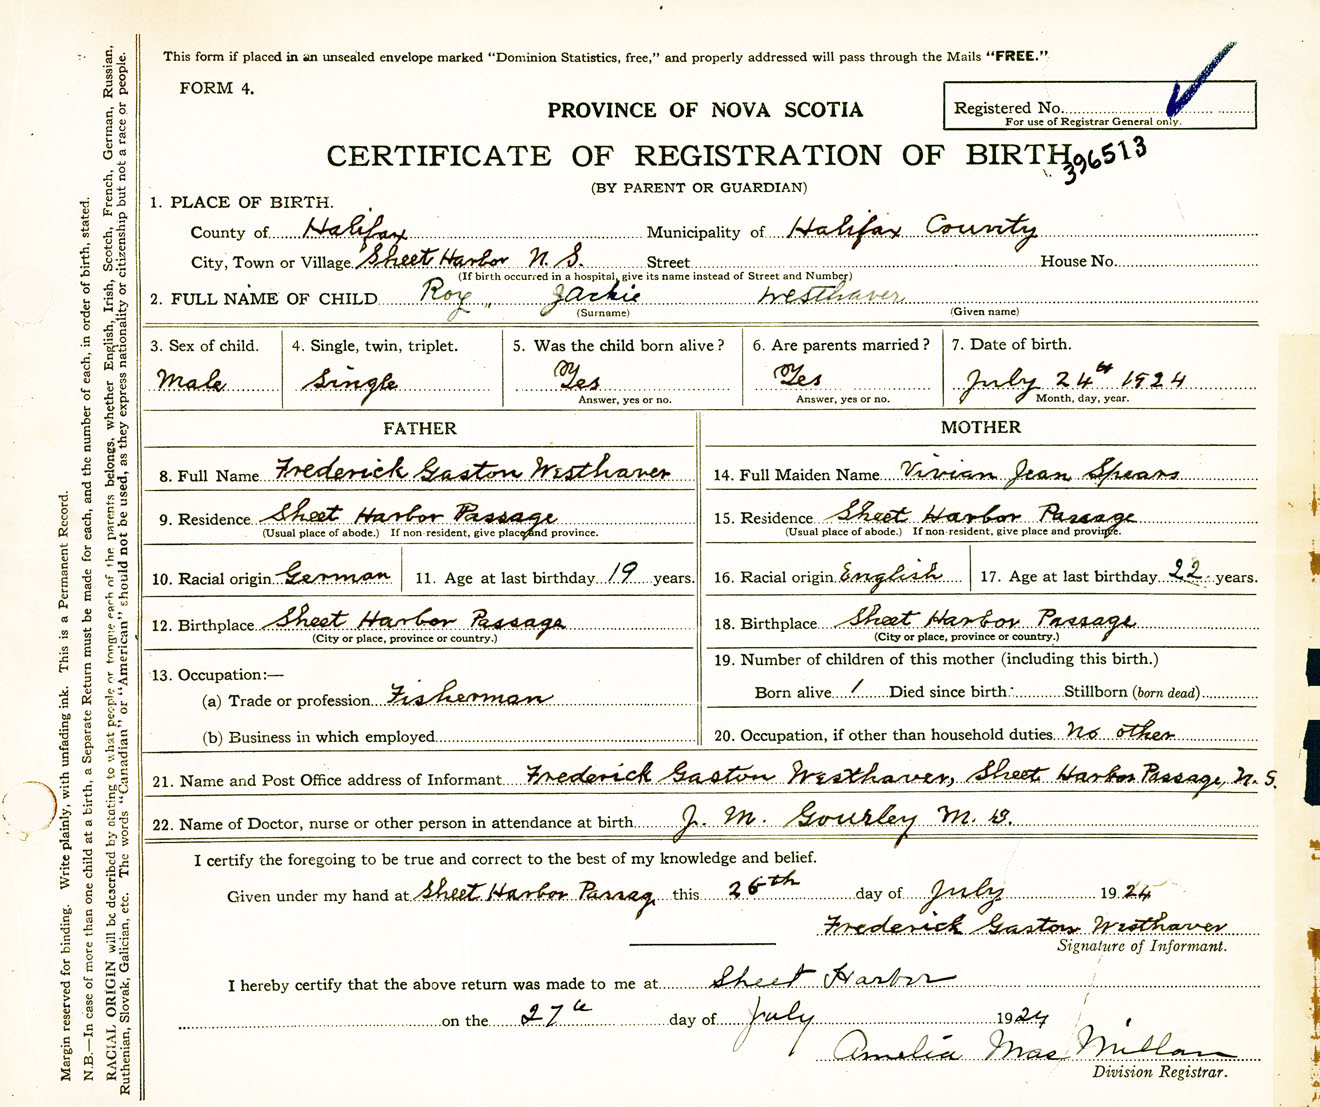 This form if placed in an unsealed envelope marked “Dominion Statistics, free,” and properly addressed will pass through the Mails “FREE.”
FORM 4.
PROVINCE OF NOVA SCOTIA
Registered No.
For use of Registrar General only.
CERTIFICATE OF REGISTRATION OF BIRTH
396513
(BY PARENT OR GUARDIAN)
1. PLACE OF BIRTH.
County of Halifax Municipality of Halifax County
City, Town or Village Sheet Harbor N. S. Street House No.
(If birth occurred in a hospital, give its name instead of Street and Number)
2. FULL NAME OF CHILD Roy Jackie Westhaver
(Surname) (Given name)
3. Sex of child. 4. Single, twin, triplet. 5. Was the child born alive? 6. Are parents married? 7. Date of birth.
Male Single Yes Yes July 24th 1924
Answer, yes or no. Answer, yes or no. Month, day, year.
FATHER MOTHER
8. Full Name Frederick Gaston Westhaver 14. Full Maiden Name Vivian Jean Spears
9. Residence Sheet Harbor Passage 15. Residence Sheet Harbor Passage
(Usual place of abode.) If non-resident, give place and province. (Usual place of abode.) If non-resident, give place and province.
10. Racial origin German 11. Age at last birthday 19 years. 16. Racial origin English 17. Age at last birthday 22 years.
12. Birthplace Sheet Harbor Passage 18. Birthplace Sheet Harbor Passage
(City or place, province or country.) (City or place, province or country.)
13. Occupation:— 19. Number of children of this mother (including this birth.)
(a) Trade or profession Fisherman Born alive 1 Died since birth Stillborn (born dead)
(b) Business in which employed 20. Occupation, if other than household duties No other
21. Name and Post Office address of Informant Frederick Gaston Westhaver, Sheet Harbor Passage, N. S.
22. Name of Doctor, nurse or other person in attendance at birth J. M. Gourley M. D.
I certify the foregoing to be true and correct to the best of my knowledge and belief.
Given under my hand at Sheet Harbor Passag this 26th day of July 1924
Frederick Gaston Westhaver
Signature of Informant.
I hereby certify that the above return was made to me at Sheet Harbor
on the 27th day of July 1924
Amelia MacMillan
Division Registrar.
Margin reserved for binding. Write plainly, with unfading ink. This is a Permanent Record.
N.B.—In case of more than one child at a birth, a Separate Return must be made for each, and the number of each, in order of birth, stated.
RACIAL ORIGIN will be described by stating to what people or tongue each of the parents belongs, whether English, Irish, Scotch, French, German, Russian,
Ruthenian, Slovak, Galician, etc. The words “Canadian” or “American” should not be used, as they express nationality or citizenship but not a race or people.